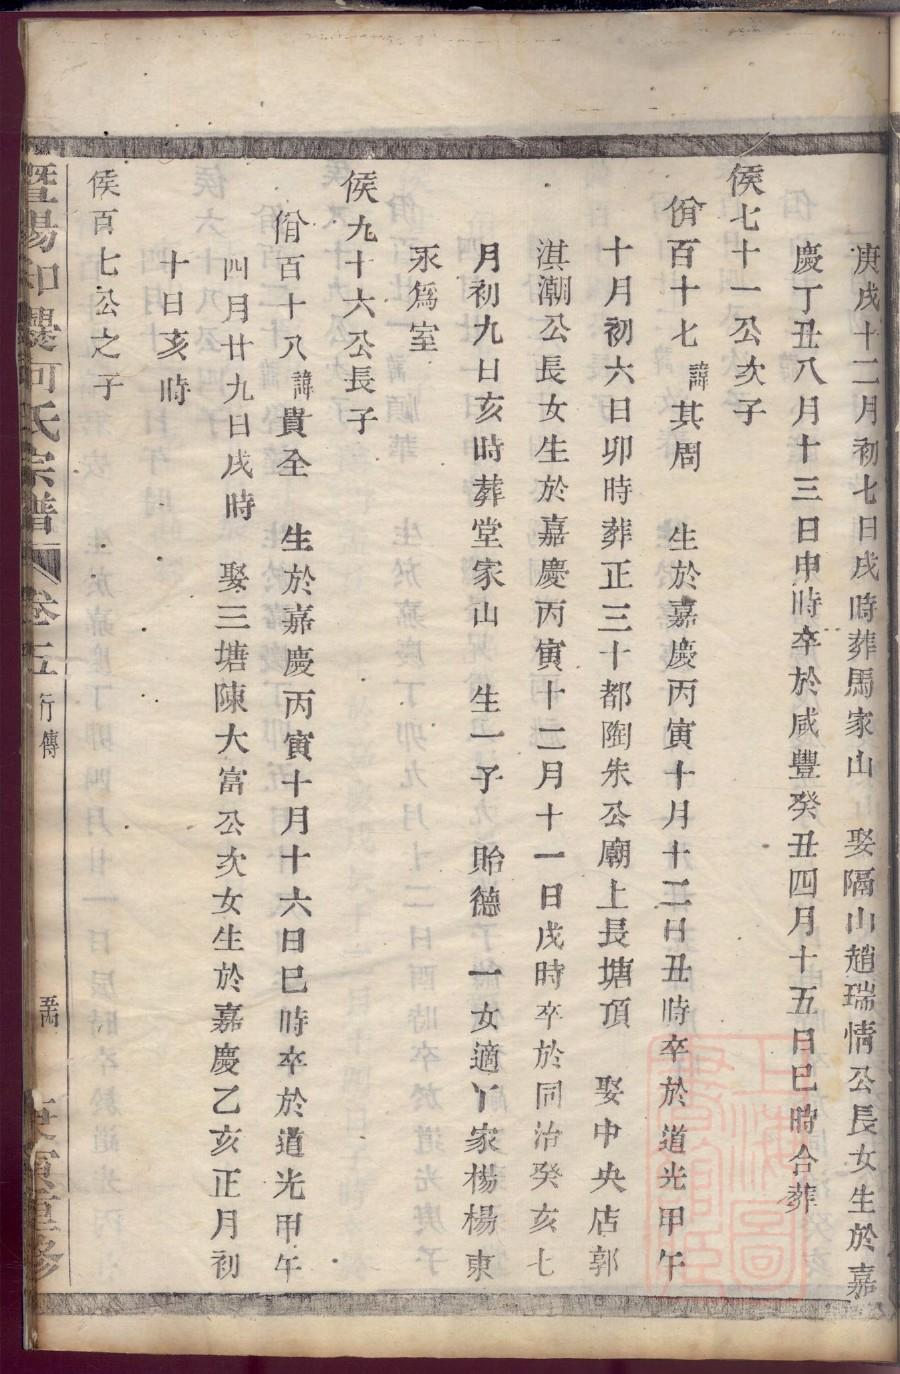 庚戌十二月初七日戌時葬馬家山　娶隔山趙瑞情公長女生於嘉
慶丁丑八月十三日申時卒於咸豐癸丑四月十五日巳時合葬
侯七十一公次子
佾百十七諱其周　生於嘉慶丙寅十月十二日丑時卒於道光甲午
十月初六日卯時葬正三十都陶朱公廟上長塘頂　娶中央店郭
淇潮公長女生於嘉慶丙寅十二月十一日戌時卒於同治癸亥七
月初九日亥時葬堂家山　生一子　貽德　一女適丫家楊楊東
永爲室
侯九十六公長子
佾百十八諱貴全　生於嘉慶丙寅十月十六日巳時卒於道光甲午
四月廿九日戌時　娶三塘陳大富公次女生於嘉慶乙亥正月初
十日亥時
侯百七公之子
暨陽和何氏宗譜　卷五　行傳　寅重修